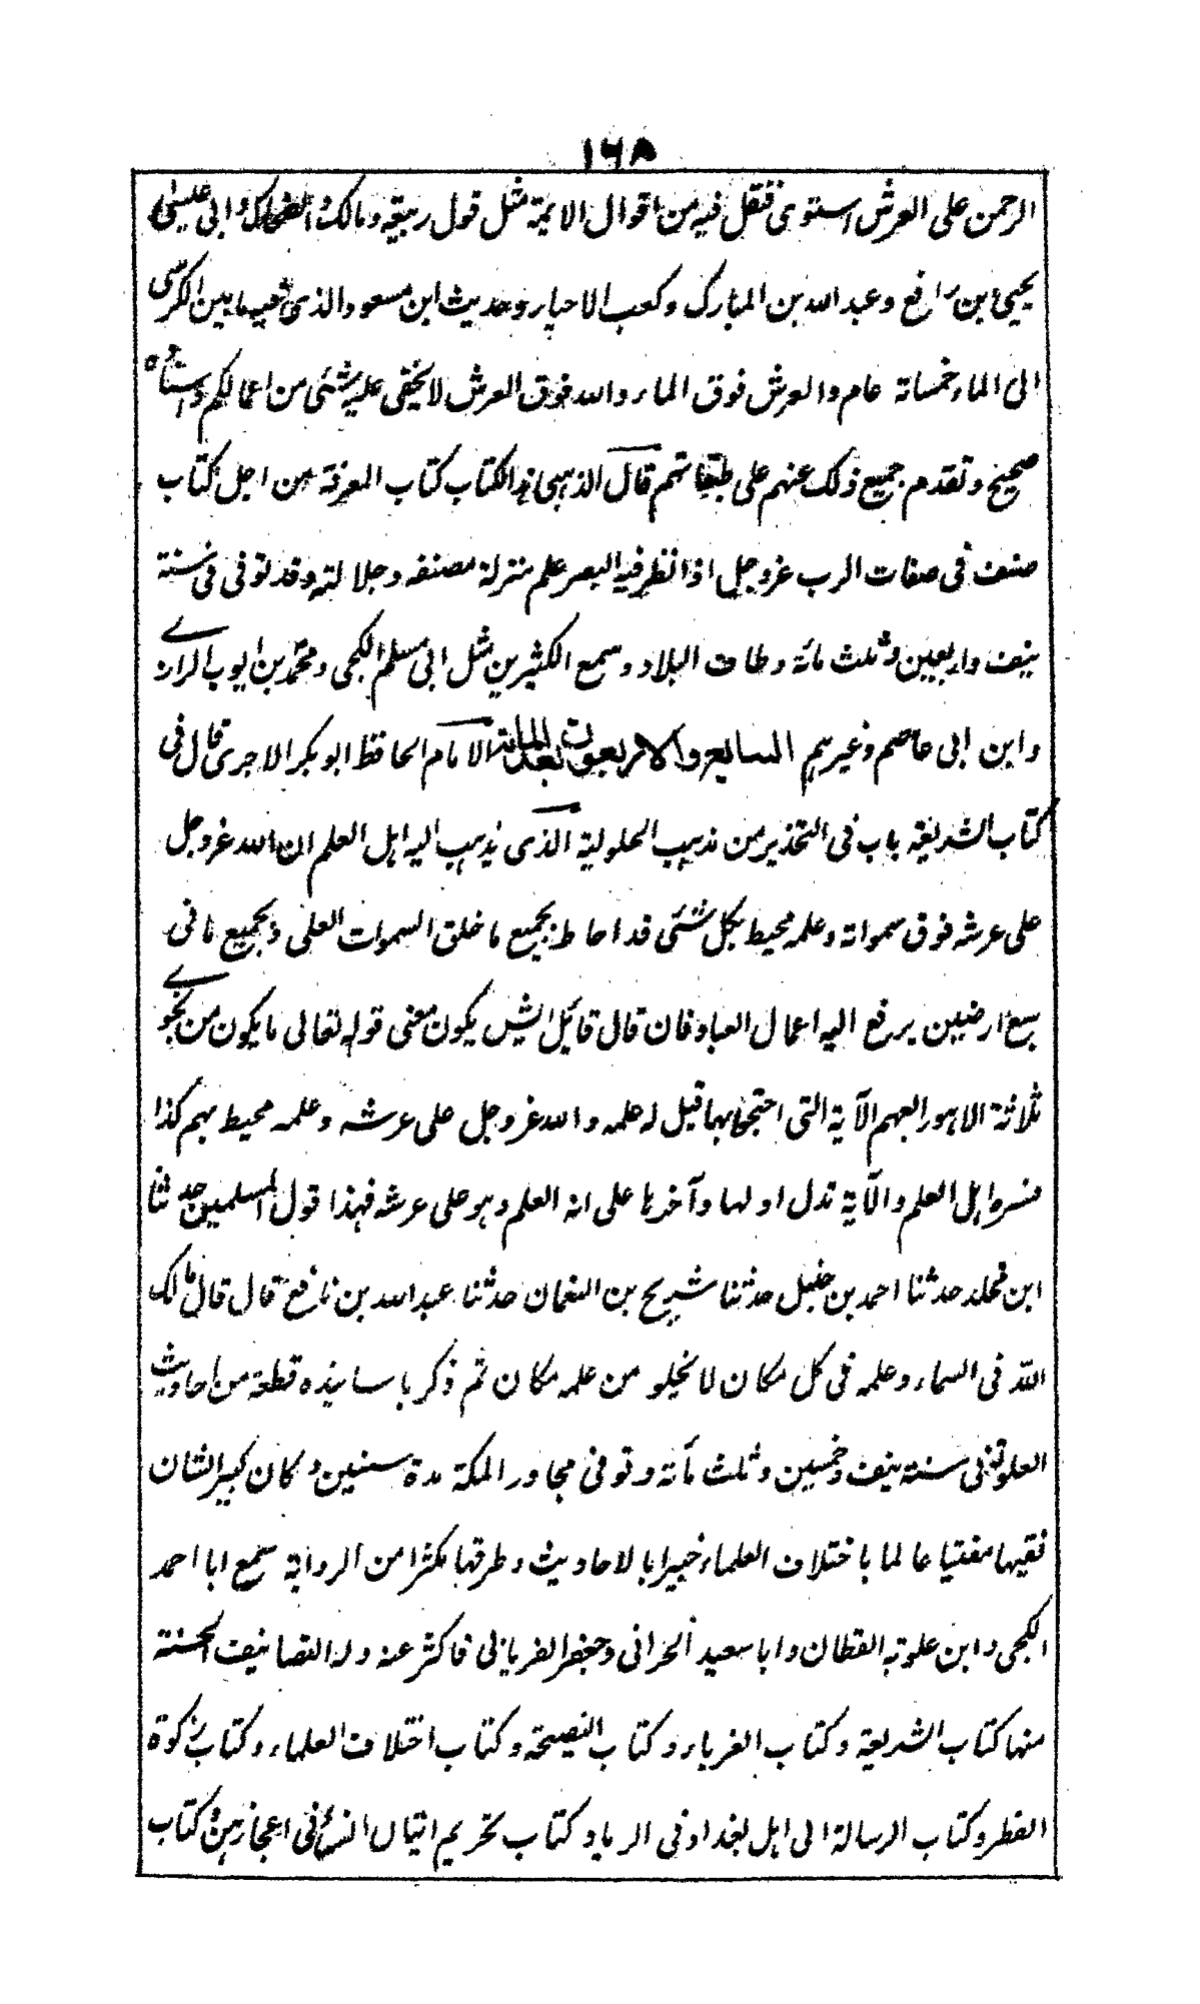 ١٦٥
الرحمن على العرش استوى فنقل فيه من اقوال الائمة مثل قول ربيعة ومالك والضحاك وابى عيسى
يحيى ابن رافع وعبد الله بن المبارك وكعب الاحبار وحديث ابن مسعود الذى فيه ما بين الكرسى
الى الماء خمسمائة عام والعرش فوق الماء والله فوق العرش لا يخفى عليه شئى من اعمالكم واسناده
صحيح وتقدم جميع ذلك عنهم على طبقاتهم قال الذهبى هذا الكتاب كتاب المعرفة من اجل كتاب
صنف فى صفات الرب عزوجل اذا نظر فيه البصير علم منزلة مصنفه وجلالته وقد توفى فى سنة
نيف واربعين وثلث مائة وطاف البلاد وسمع الكثير من مثل ابى مسلم الكجى ومحمد بن ايوب الرازى
وابن ابى عاصم وغيرهم السابع والاربعون بعد المائة الامام الحافظ ابو بكر الاجرى قال فى
كتاب الشريعة باب فى التحذير من مذهب الحلولية الذى يذهب اليه اهل العلم ان الله عزوجل
على عرشه فوق سمواته وعلمه محيط بكل شئى قد احاط بجميع ما خلق السموات العلى وبجميع ما فى
سبع ارضين يرفع اليه اعمال العباد فان قال قائل ايش يكون معنى قوله تعالى ما يكون من نجوى
ثلاثة الا هو رابعهم الآية التى احتجوا بها قيل له علمه والله عزوجل على عرشه وعلمه محيط بهم كذا
فسره اهل العلم والآية تدل اولها وآخرها على انه العلم وهو على عرشه فهذا قول المسلمين حدثنا
ابن مخلد حدثنا احمد بن حنبل حدثنا شريح بن النعمان حدثنا عبد الله بن نافع قال قال مالك
الله فى السماء وعلمه فى كل مكان لا يخلو من علمه مكان ثم ذكر باسانيذه قطعة من احاديث
العلو توفى سنة نيف وخمسين وثلث مأته وتوفى مجاور المكة مدة سنين وكان كبير الشان
فقيها مفتيا عالما باختلاف العلماء خبيرا بالاحاديث وطرقها مكثرا من الرواية سمع ابا احمد
الكجى وابن علوته القطان وابا سعيد الحرانى وجعفر الفريابى فاكثر عنه وله التصانيف الحسنة
منها كتاب الشريعة وكتاب الغرباء وكتاب النصيحة وكتاب اختلاف العلماء وكتاب زكوة
الفطر وكتاب الرسالة الى اهل بغداد فى الرياء وكتاب تحريم اتيان النساء فى اعجازهن وكتاب